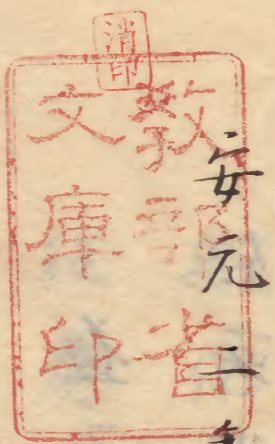 消印
教部省
文庫印
安元二年